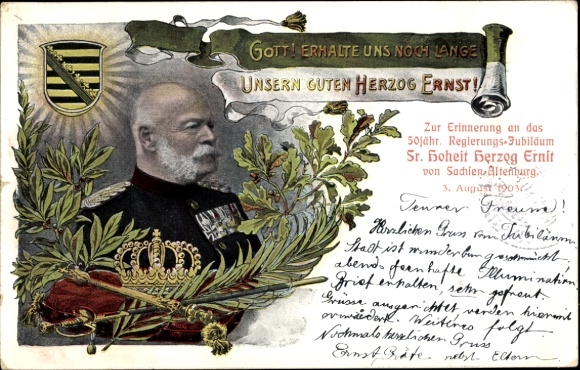 GOTT! ERHALTE UNS NOCH LANGE
UNSERN GUTEN HERZOG ERNST!
Zur Erinnerung an das
50jähr. Regierungs-Jubiläum
Sr. Hoheit Herzog Ernst
von Sachsen-Altenburg.
3. August 1903.
Teurer Freund!
Herzlichen Gruss vom Jubiläum
Stadt ist wunderbar geschmückt
abends feenhafte Illumination
Brief erhalten, sehr gefreut.
Grüsse ausgerichtet werden hiermit
erwiedert. Weiteres folgt.
Nochmals herzlichen Gruss
Ernst nebst Eltern